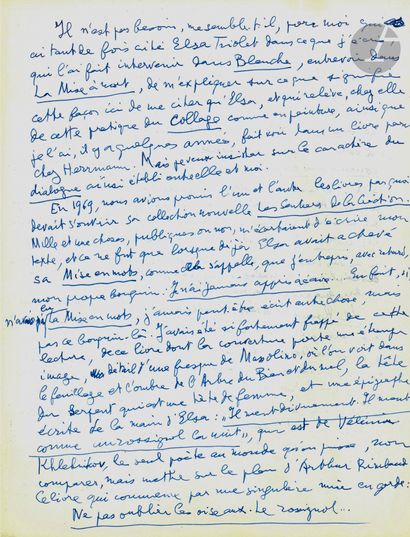 Il n'est pas besoin, me semble-t-il, pour moi qui
ai tant de fois cité Elsa Triolet dans ce que j'écris
qui l'ai fait intervenir dans Blanche, entrevoir dans
La Mise à mort, de m'expliquer sur ce que signifie
cette façon ici de me citer qu'Elsa, et qui relève, chez elle
de cette pratique du collage comme en peinture, ainsi que
je l'ai, il y a quelques années, fait voir dans un livre paru
chez Hermann. Mais je veux insister sur le caractère du
dialogue ainsi établi entre elle et moi.
En 1969, nous avions promis l'un et l'autre les livres par quoi
devait s'ouvrir sa collection nouvelle Les Sentiers de la Création.
Mille et une choses, publiques ou non, m'écartaient d'écrire mon
texte, et ce ne fut que lorsque déjà Elsa avait achevé
sa Mise en mots, comme elle s'appelle, que j'entrepris, avec retard,
mon propre bouquin: Je n'ai jamais appris à écrire. En fait, si
n'avais lu La Mise en mots, j'aurais peut-être écrit autre chose, mais
pas ce bouquin-là. J'avais été si fortement frappé de cette
lecture, de ce livre dont la couverture porte une étrange
image, détail d'une fresque de Masolino, où l'on voit dans
le feuillage et l'ombre de l'Arbre du Bien et du mal, la tête
du Serpent qui est une tête de femme, et une épigraphe
écrite de la main d'Elsa: "Il ment divinement. Il ment
comme un rossignol la nuit", qui est de Vélimir
Khlebnikov, le seul poète au monde qu'on puisse, non
comparer, mais mettre sur le plan d'Arthur Rimbaud
Ce livre qui commence par une singulière mise en garde:
Ne pas oublier les oiseaux. Le rossignol...